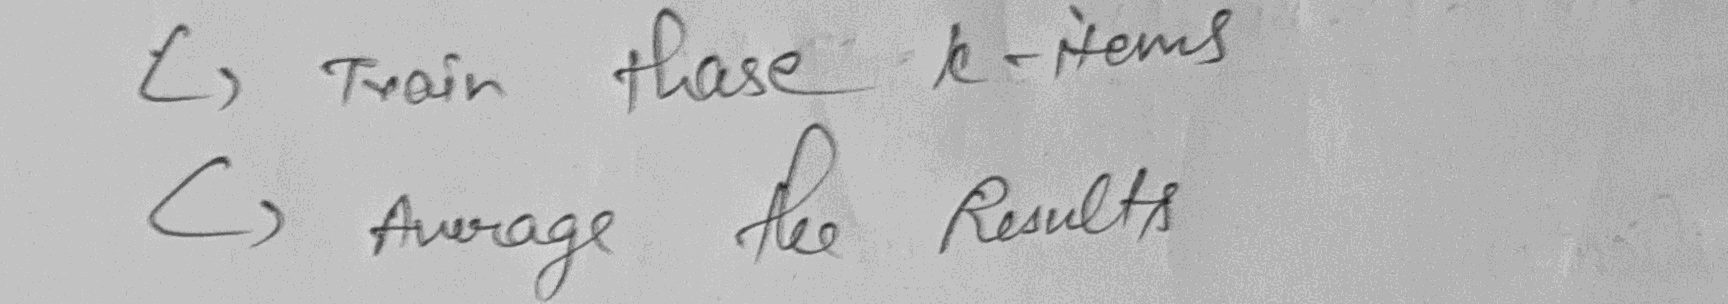 ↳ Train thase k-items
↳ Average the Results